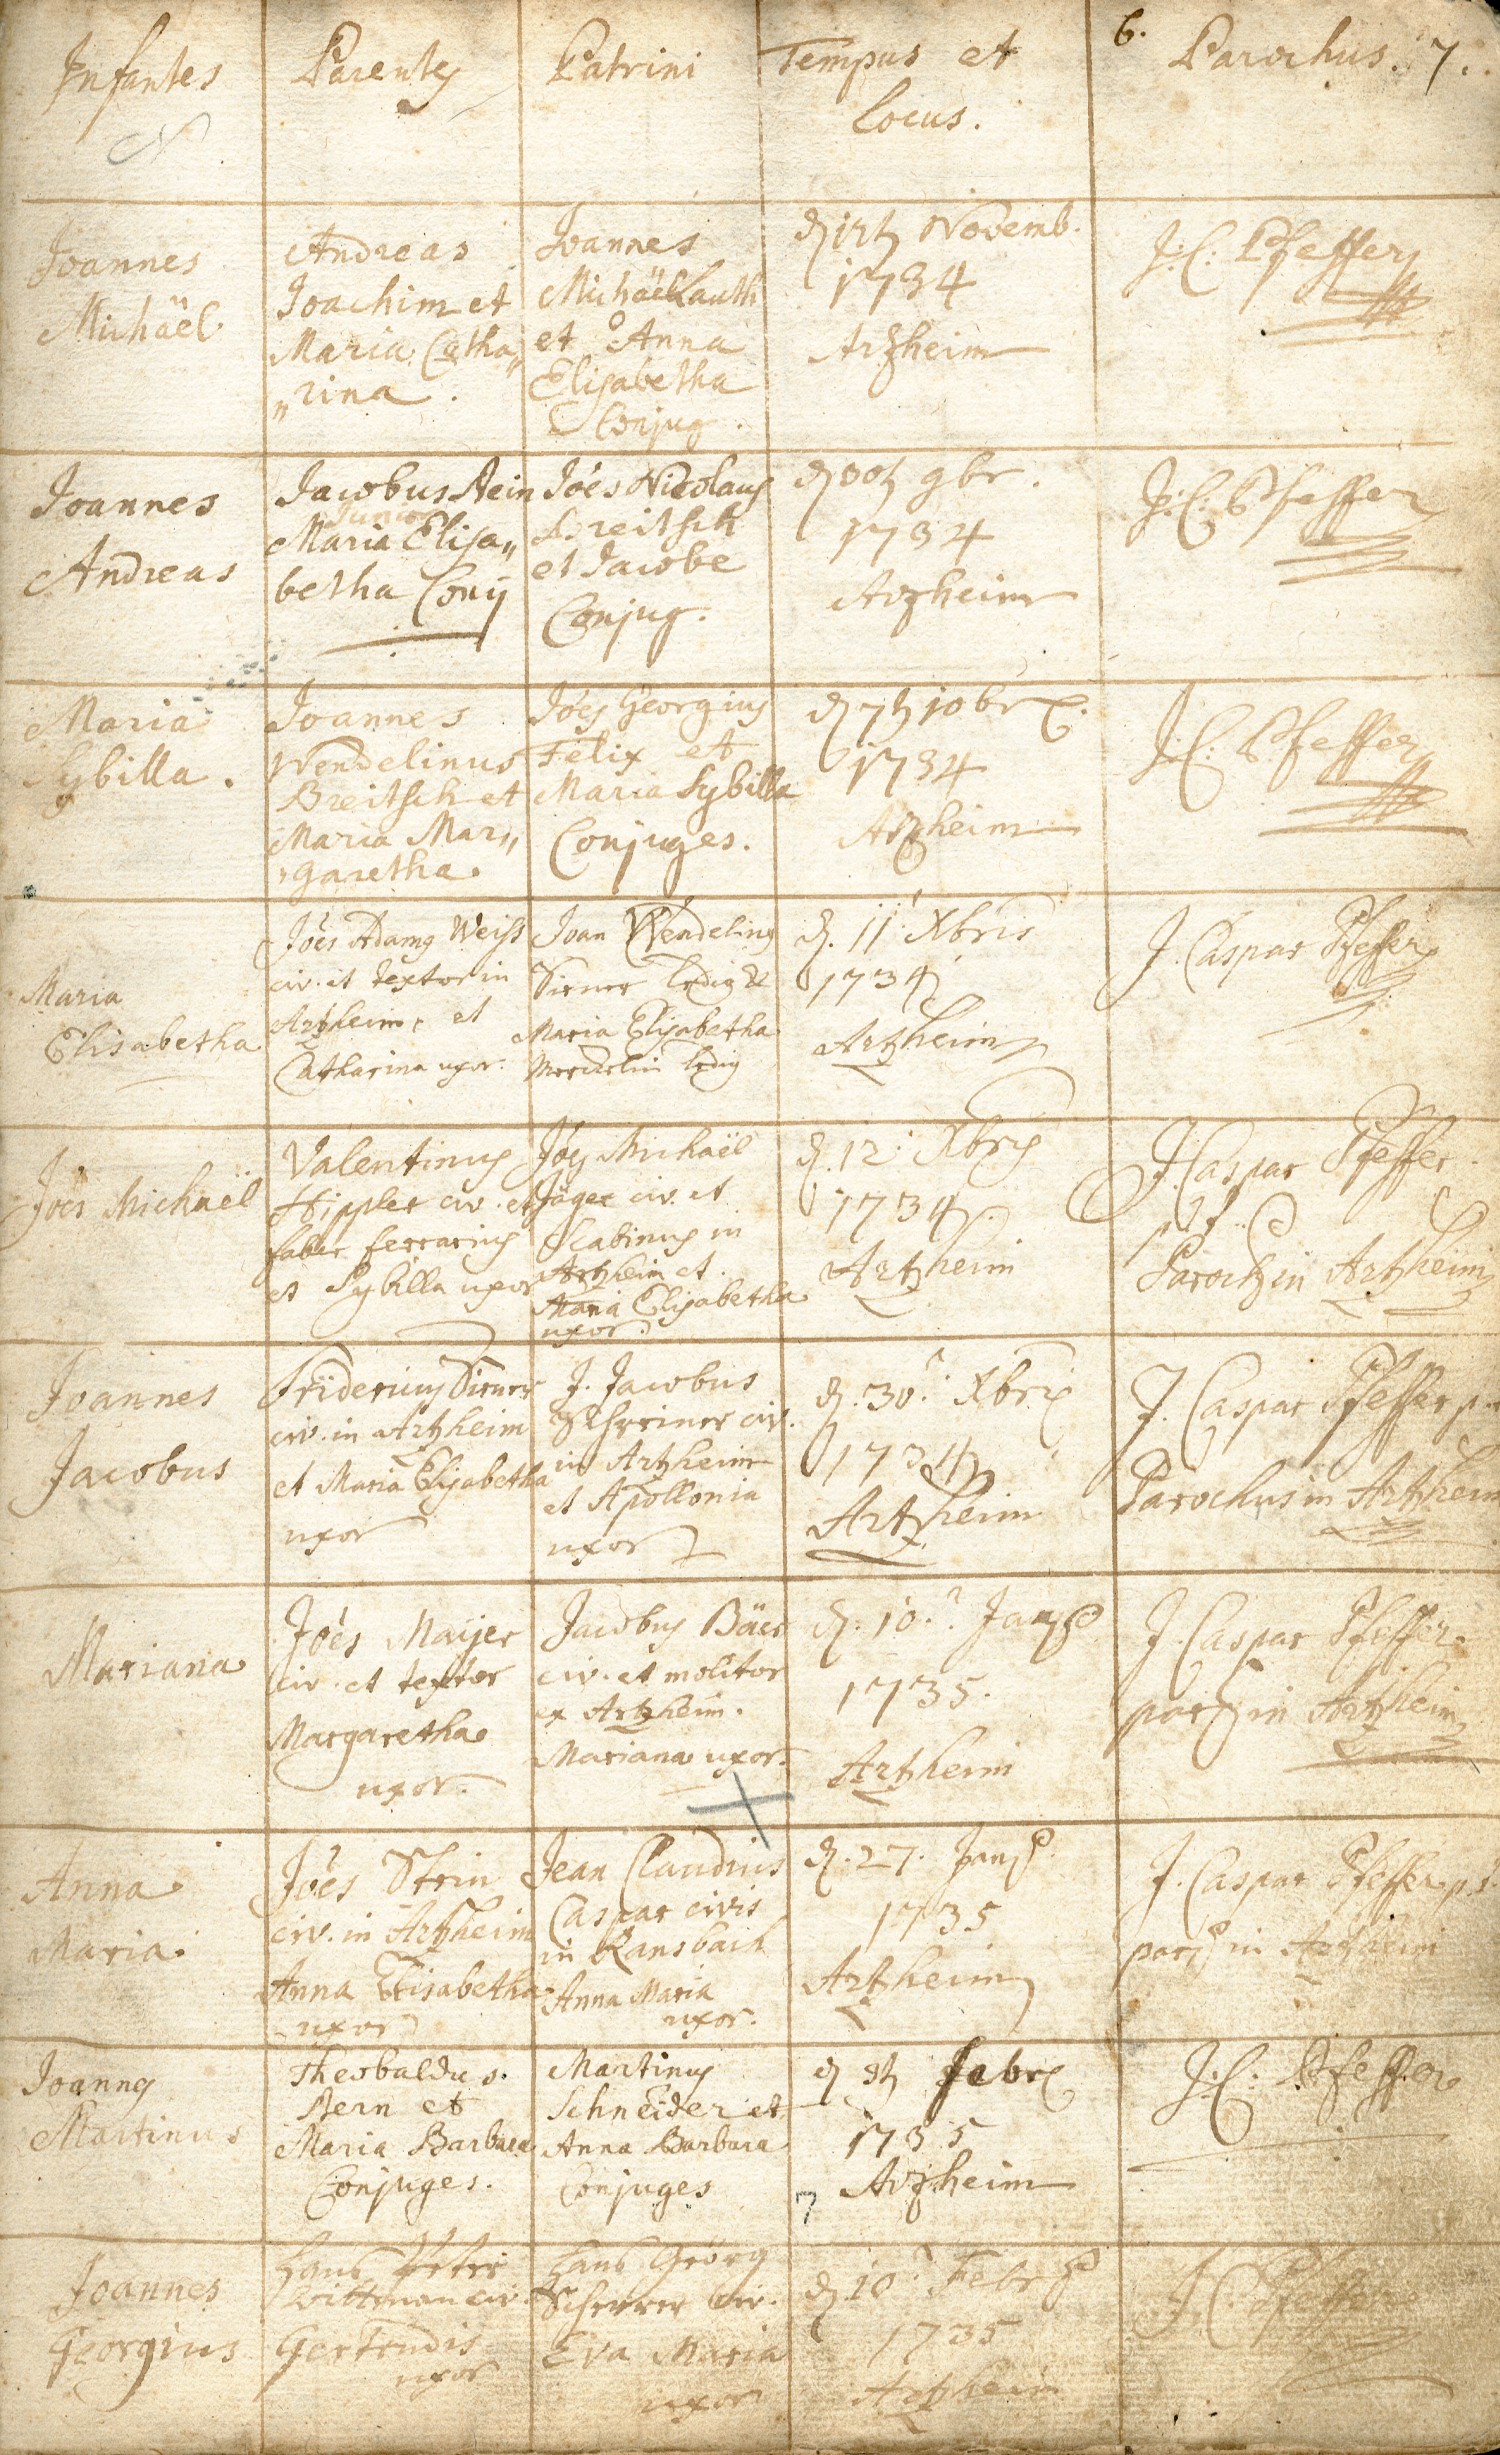 Infantes
Parentes
Patrini
Tempus et
Locus.
6.
Parochus. 7.
N
Joannes
Michäel
Andreas
Joachim et
Maria Catha„
„rina.
Joannes
Michäel Lauth
et Anna
Elisabetha
Conjug.
Novemb.
1734
Arzheim
J: C: Pfeffer
Joannes
Andreas
Jacobus Hein
Junior
Maria Elisa„
betha Conj
Joés Nicolaus
Breitsch
et Jacobe
Conjug.
d 30t 9br.
1734
Arzheim
J: C: Pfeffer
Maria
Sybilla.
Joannes
Wendelinus
Breitsch et
Maria Mar„
„garetha.
Joés Georgius
Felix et
Maria Sybilla
Conjuges.
d 7t 10br
1734
Arzheim
J: C: Pfeffer
Maria
Elisabetha
Joés Adamg Weiss
civ. et textor in
Artzheim, et
Catharina uxor.
Joan Wendeling
Sirner ledig &
Maria Elisabetha
ledig
d. 11. Xbris
1734
Artzheim
J. Caspar Pfeffer
Joés Michaël
Valentinus
Hippler civ. et
faber ferrarius
et Sybilla uxor
Joés Michaël
Jäger civ. et
Scabinus in
Artzheim et
Maria Elisabetha
uxor.
d. 12. Xbris
1734.
Artzheim
J. Caspar Pfeffer
p. t.
Paroch in Artzheim
Joannes
Jacobus
Fridericus Sirner
civ. in Artzheim
et Maria Elisabetha
uxor
J. Jacobus
Schreiner civ.
in Artzheim
et Apollonia
uxor
d. 30. Xbris
1734
Artzheim
J. Caspar Pfeffer p. t.
Parochus in Artzheim
Mariana
Joés Maijer
civ. et textor
Margaretha
uxor.
Jacobus Bäer
civ. et molitor
ex Artzheim.
Mariana uxor.
d. 10. Jan
1735.
Artzheim
J. Caspar Pfeffer
par in Artzheim
Anna
Maria.
Joés Stein
civ. in Artzheim
Anna Elisabetha
uxor
Jean Claudius
Caspar civis
in Ransbach
Anna Maria
uxor.
d. 27. Jan
1735
Artzheim
J. Caspar Pfeffer p. t.
par in Artzheim
Joanng
Martinus
Theobaldus
Kern et
Maria Barbara
Conjuges.
Martinus
Schneider et
Anna Barbara
Conjuges
febr
1735
Arzheim
7
J: C: Pfeffer
Joannes
Georgius
Hans Peter
Wittman civ.
Gertrudis
uxor
Hans Georg
Scherrer civ.
Eva Maria
uxor
d 10. Febr
1735
Artzheim
J. C. Pfeffer